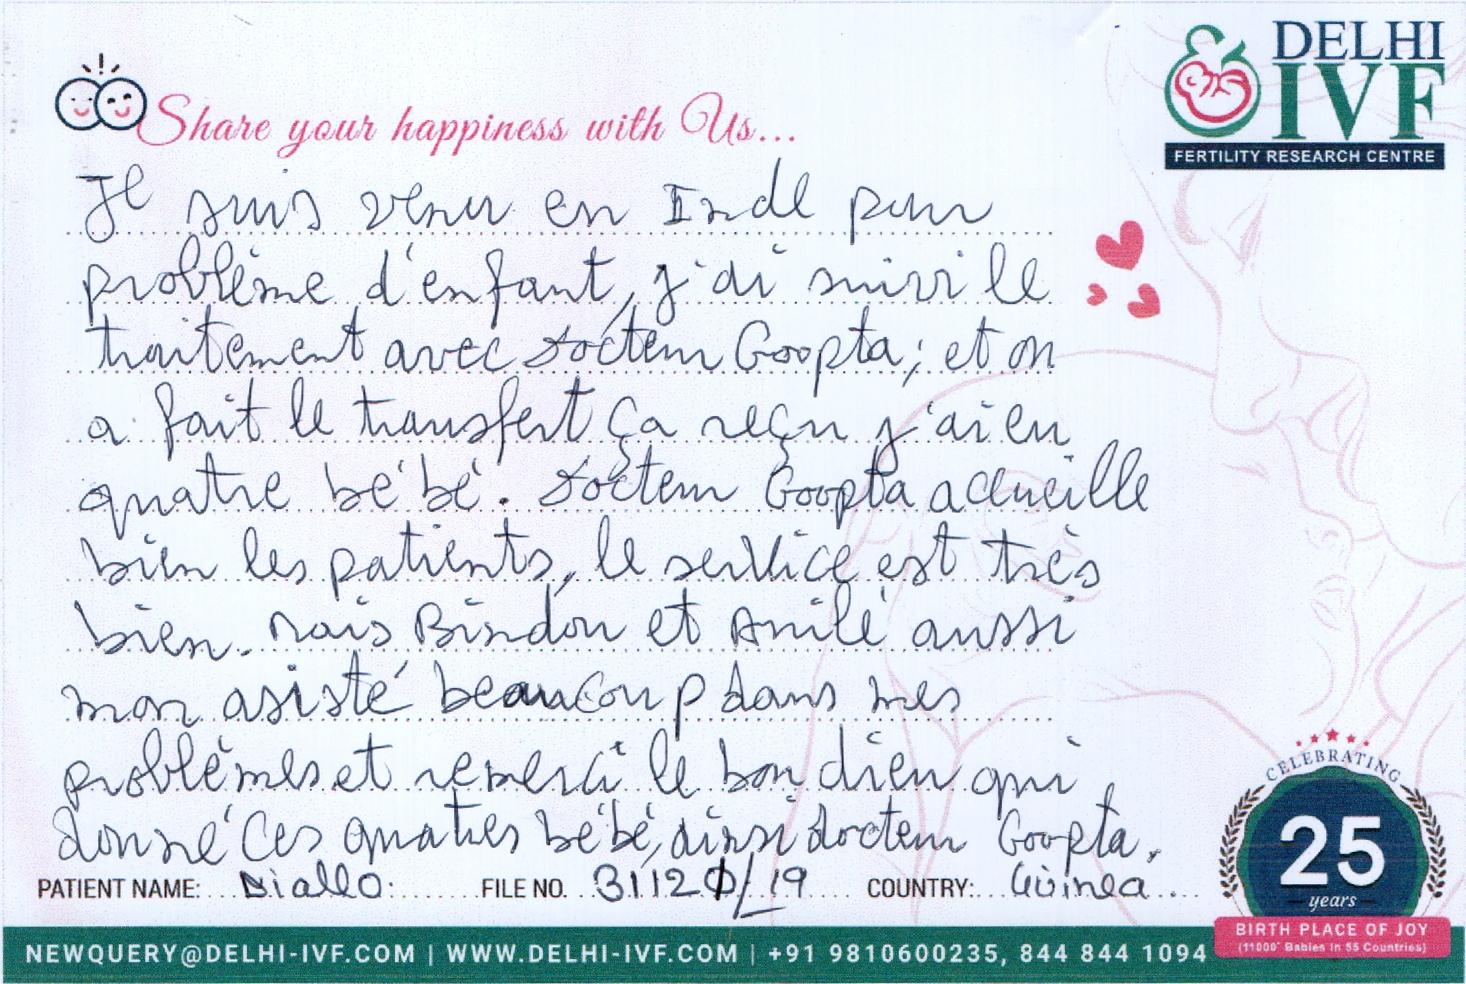 DELHI
IVF
FERTILITY RESEARCH CENTRE
Share your happiness with Us...
Je suis venu en Inde pour
problème d'enfant, j'ai suivi le
traitement avec docteur Goopta; et on
a fait le transfert ça reçu j'ai eu
quatre bébé. docteur Goopta accueille
bien les patients, le service est très
bien. Mais Bindou et Anilé aussi
mon asisté beaucoup dans mes
problèmes et remerci le bon dieu qui
donné ces quatres bébé, ainsi docteur Goopta.
PATIENT NAME: Diallo FILE NO. 31120/19 COUNTRY: Guinea
CELEBRATING
25
years
BIRTH PLACE OF JOY
(11000+ Babies in 55 Countries)
NEWQUERY@DELHI-IVF.COM | WWW.DELHI-IVF.COM | +91 9810600235, 844 844 1094